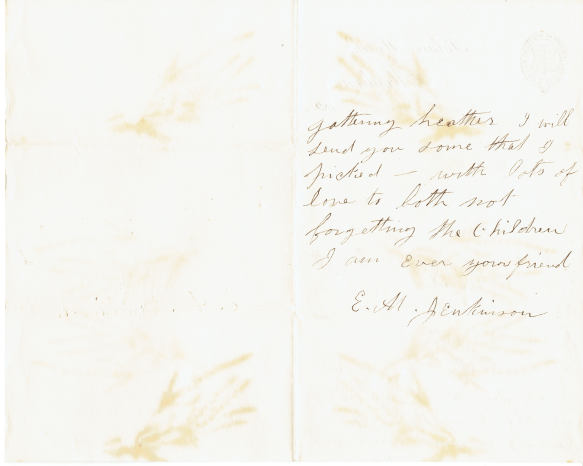 gathering heather I will
send you some that I
picked – with lots of
love to both not
forgetting the Children
I am Ever your friend
E. M. Jenkinson